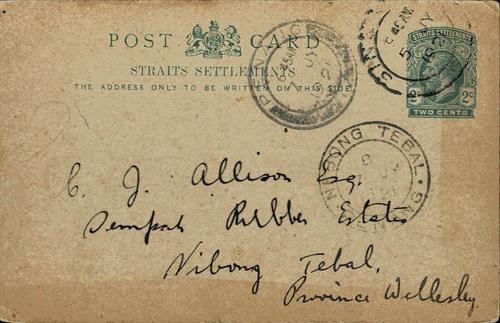 POST CARD
STRAITS SETTLEMENTS
THE ADDRESS ONLY TO BE WRITTEN ON THIS SIDE
STRAITS SETTLEMENTS
2c 2c
TWO CENTS
PENANG
NIBONG TEBAL
PENANG
C. J. Allison Esq.
Sempah Rubber Estates
Nibong Tebal,
Province Wellesley